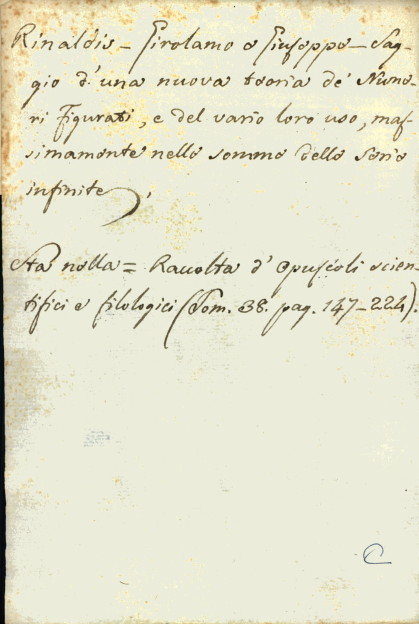 Rinaldis - Girolamo e Giuseppe - Sag-
gio d'una nuova teoria de' Nume-
ri Figurati, e del vario loro uso, mas-
simamente nelle somme delle serie
infinite,
Sta nella = Racolta d' Opuscoli scien-
tifici e filologici (Tom. 38. pag. 147-224).
C